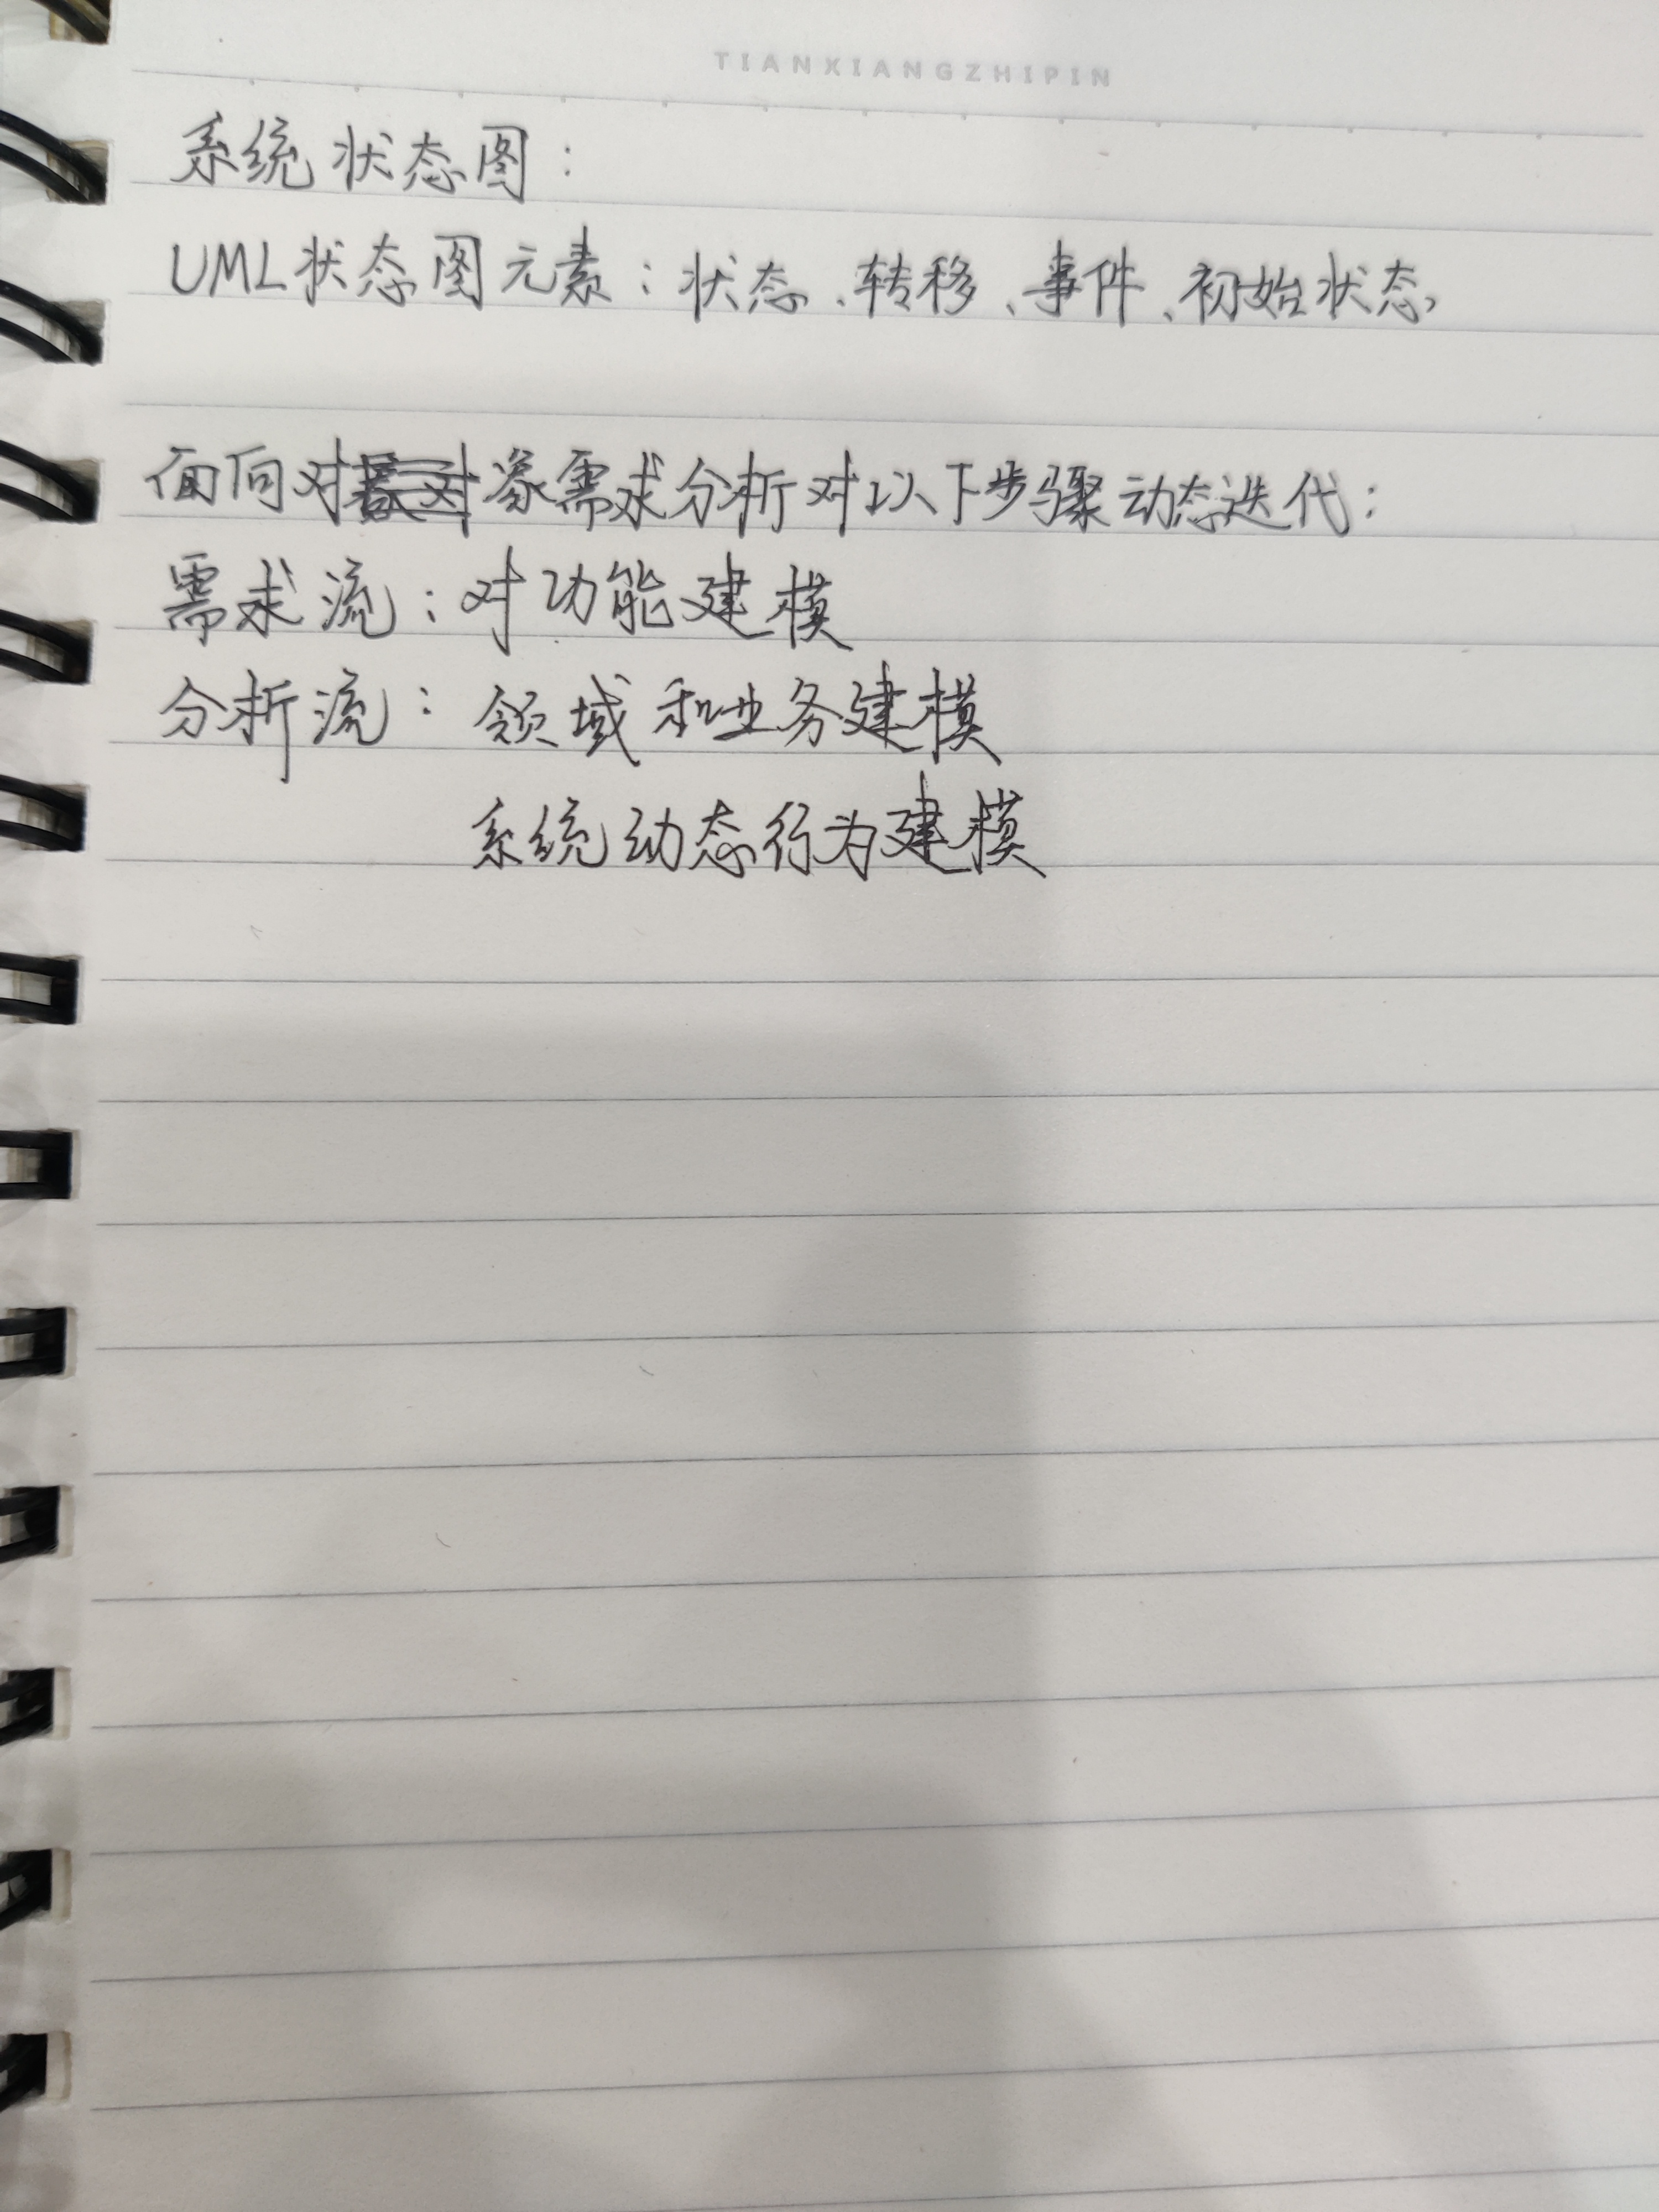 TIANXIANGZHIPIN
系统状态图：
UML状态图元素：状态、转移、事件、初始状态、
面向对象需求分析对以下步骤动态迭代：
需求流：对功能建模
分析流：领域和业务建模
系统动态行为建模